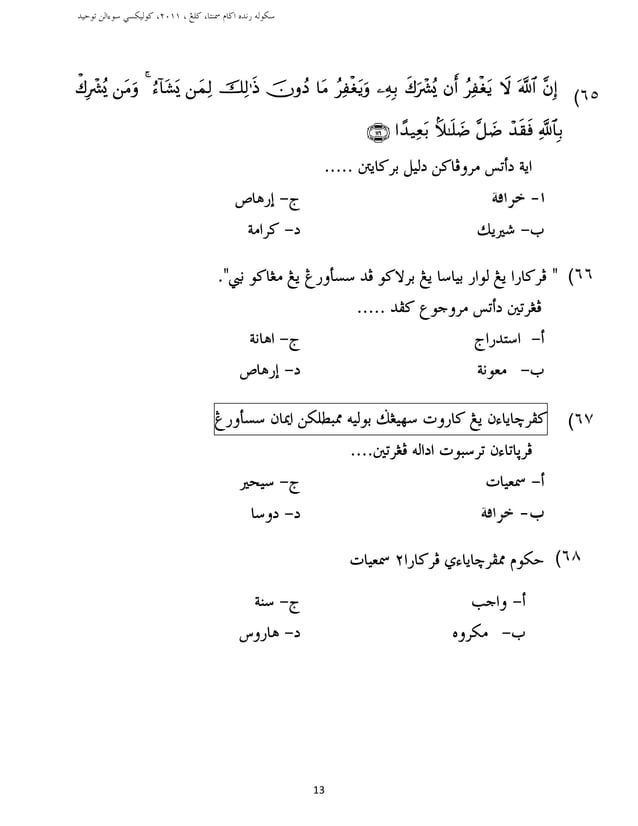 سكوله رنده اڬام سمنتا، كلڠ ، ٢٠١١، كوليكسي سوءالن توحيد
٦٥) إِنَّ ٱللَّهَ لَا يَغْفِرُ أَن يُشْرَكَ بِهِۦ وَيَغْفِرُ مَا دُونَ ذَٰلِكَ لِمَن يَشَآءُ ۚ وَمَن يُشْرِكْ
بِٱللَّهِ فَقَدْ ضَلَّ ضَلَٰلًۢا بَعِيدًا ﴿١١٦﴾
اية دأتس مروڤاكن دليل بركايتن .....
ا- خرافة ج- إرهاص
ب- شيريك د- كرامة
٦٦) " ڤركارا يڠ لوار بياسا يڠ برلاكو ڤد سسأورڠ يڠ مڠاكو نبي".
ڤڠرتين دأتس مروجوع كڤد .....
أ- استدراج ج- اهانة
ب- معونة د- إرهاص
٦٧) كڤرچاياءن يڠ كاروت سهيڠڬ بوليه ممبطلكن إيمان سسأورڠ
ڤرڽاتاءن ترسبوت اداله ڤڠرتين....
أ- سمعيات ج- سيحير
ب- خرافة د- دوسا
٦٨) حكوم ممڤرچاياءي ڤركارا٢ سمعيات
أ- واجب ج- سنة
ب- مكروه د- هاروس
13